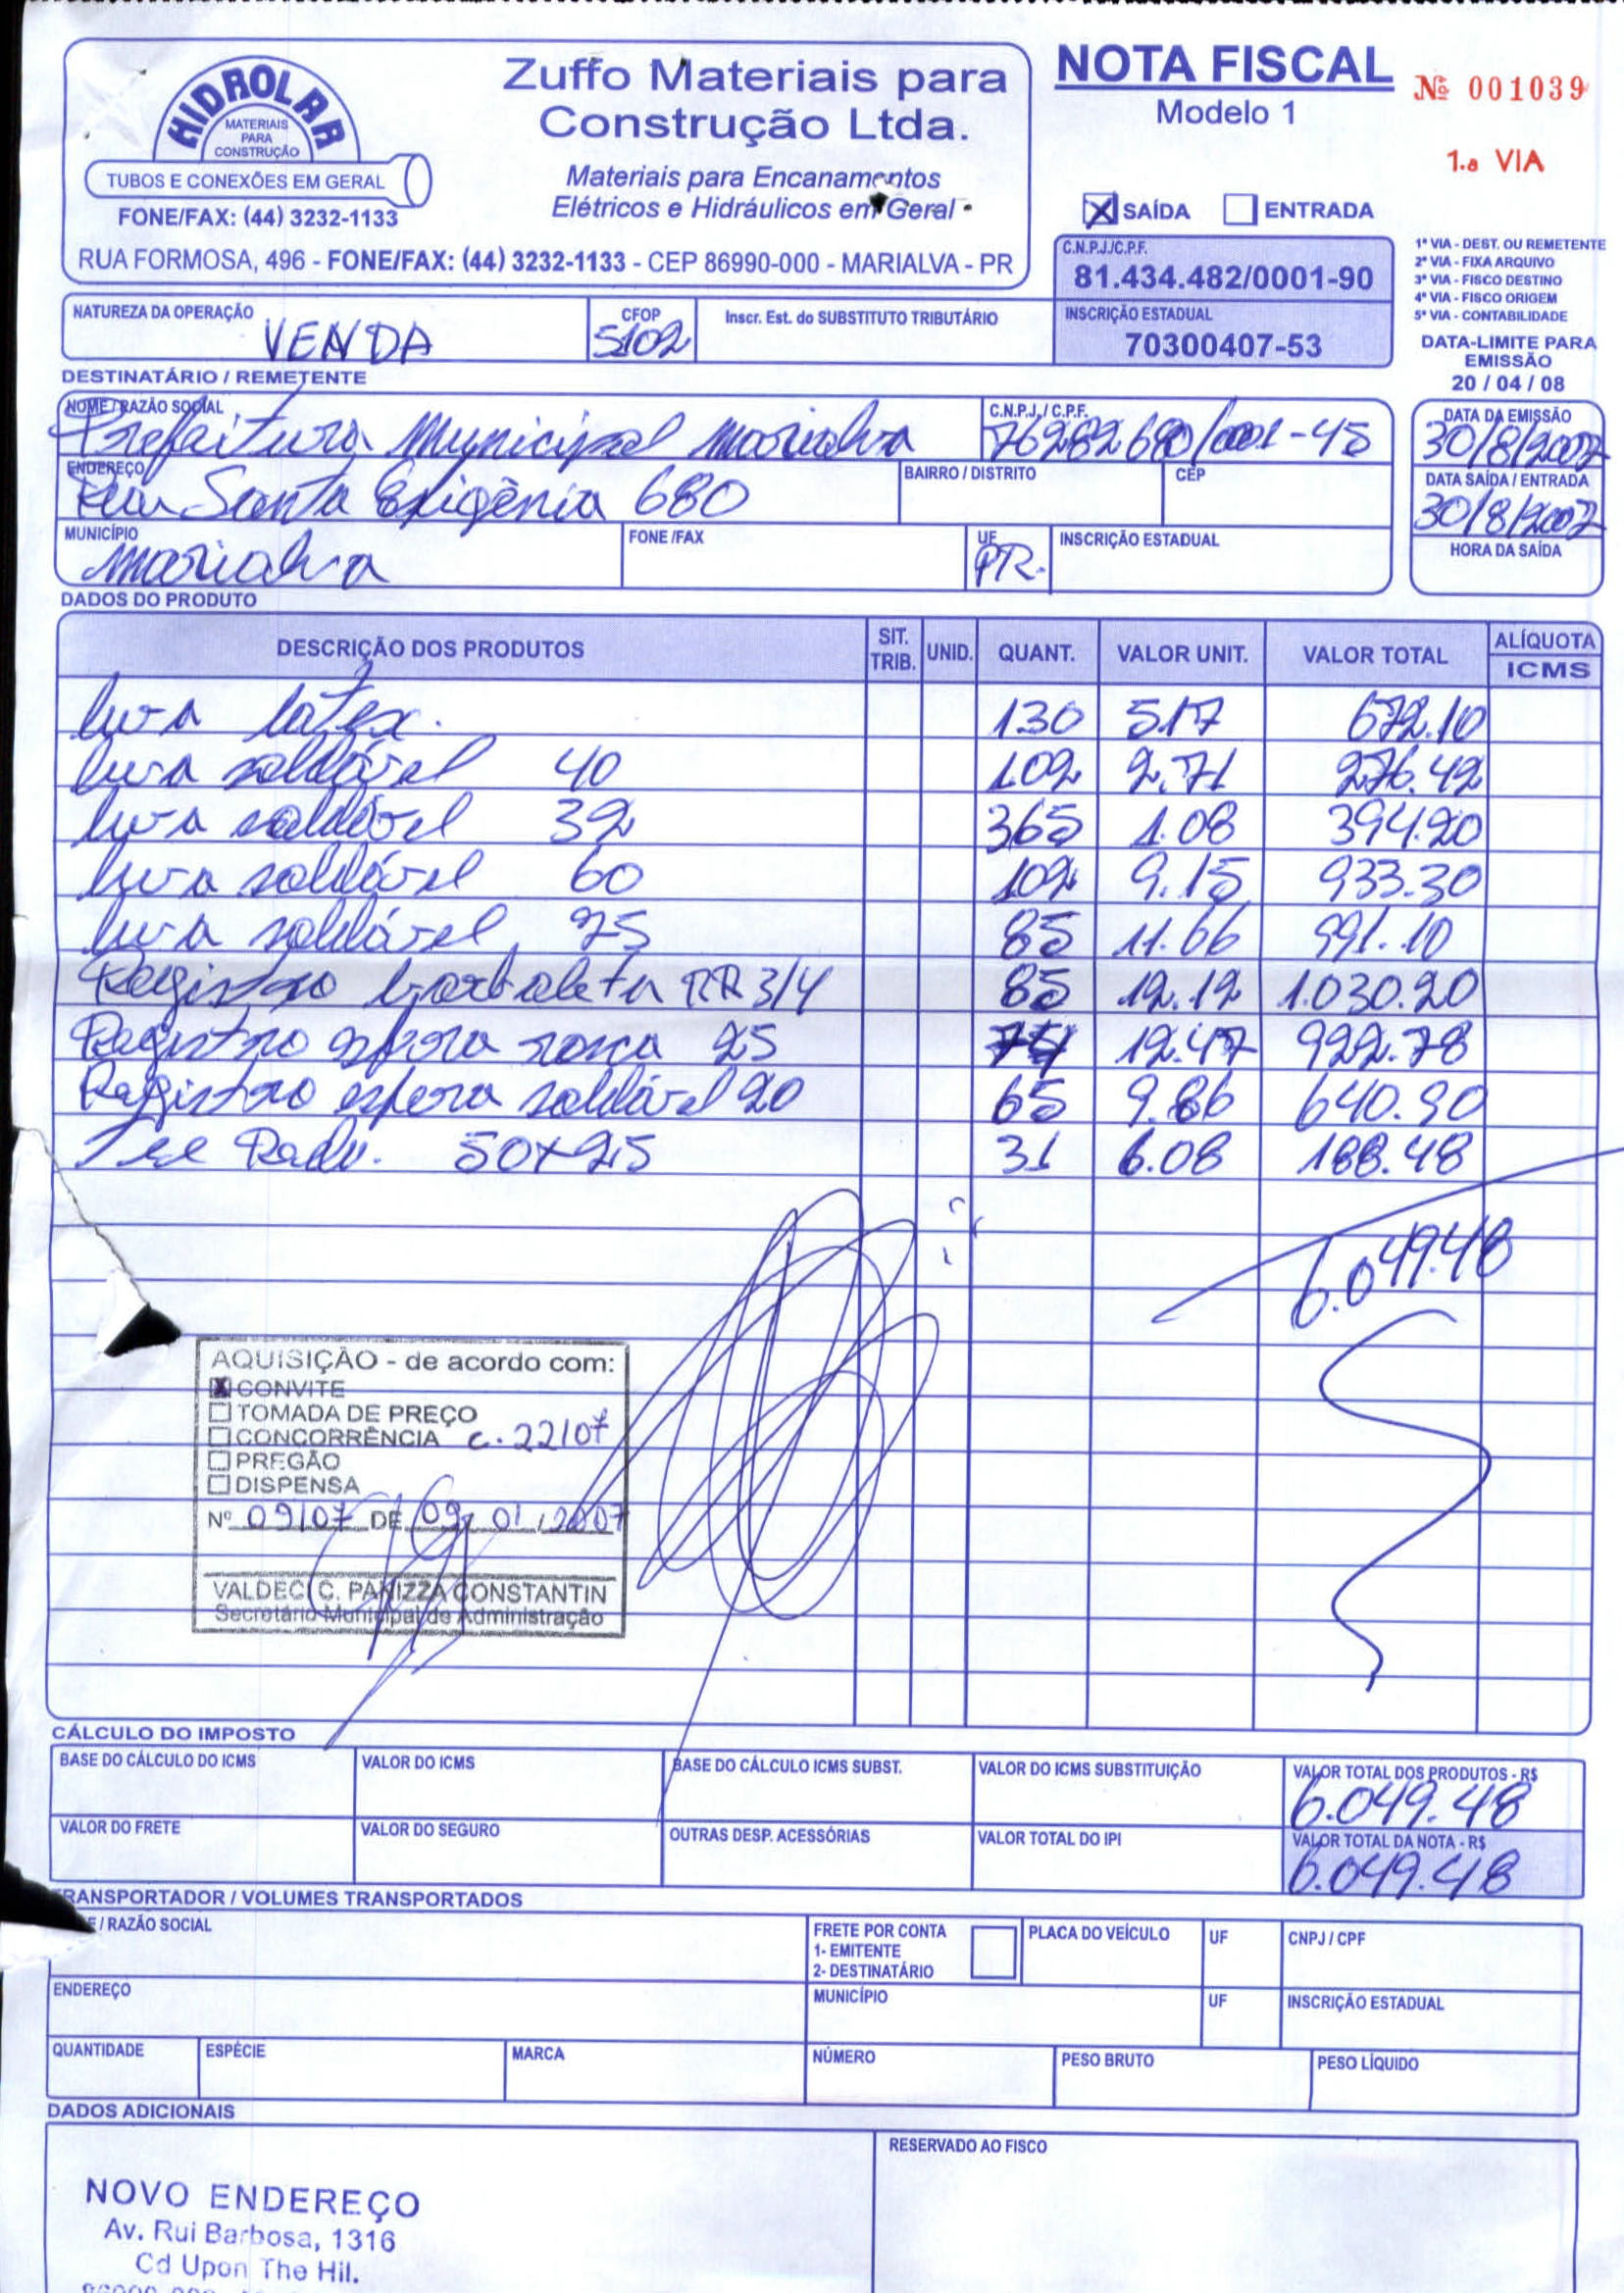 HIDROLAR
MATERIAIS
PARA
CONSTRUÇÃO
TUBOS E CONEXÕES EM GERAL
FONE/FAX: (44) 3232-1133
Zuffo Materiais para
Construção Ltda.
Materiais para Encanamentos
Elétricos e Hidráulicos em Geral
RUA FORMOSA, 496 - FONE/FAX: (44) 3232-1133 - CEP 86990-000 - MARIALVA - PR
NOTA FISCAL
Modelo 1
Nº 001039
1.a VIA
X SAÍDA ENTRADA
C.N.P.J./C.P.F.
81.434.482/0001-90
INSCRIÇÃO ESTADUAL
70300407-53
1ª VIA - DEST. OU REMETENTE
2ª VIA - FIXA ARQUIVO
3ª VIA - FISCO DESTINO
4ª VIA - FISCO ORIGEM
5ª VIA - CONTABILIDADE
DATA-LIMITE PARA
EMISSÃO
20 / 04 / 08
NATUREZA DA OPERAÇÃO
VENDA
CFOP
5102
Inscr. Est. do SUBSTITUTO TRIBUTÁRIO
DESTINATÁRIO / REMETENTE
NOME / RAZÃO SOCIAL
Prefeitura Municipal Marialva
C.N.P.J. / C.P.F.
76282680/001-45
DATA DA EMISSÃO
30/8/2007
ENDEREÇO
Rua Santa Efigênia 680
BAIRRO / DISTRITO
CEP
DATA SAÍDA / ENTRADA
30/8/2007
MUNICÍPIO
Marialva
FONE /FAX
UF
PR.
INSCRIÇÃO ESTADUAL
HORA DA SAÍDA
DADOS DO PRODUTO
DESCRIÇÃO DOS PRODUTOS SIT. TRIB. UNID. QUANT. VALOR UNIT. VALOR TOTAL ALÍQUOTA ICMS
luva latex. 130 5.17 672.10
luva soldável 40 102 2.71 276.42
luva soldável 32 365 1.08 394.20
luva soldável 60 102 9.15 933.30
luva soldável 75 85 11.66 991.10
Registro borboleta RR 3/4 85 12.12 1.030.20
Registro esfera rosca 25 74 12.47 922.78
Registro esfera soldável 20 65 9.86 640.90
Tee Redu. 50x25 31 6.08 188.48
6.049.48
AQUISIÇÃO - de acordo com:
X CONVITE
TOMADA DE PREÇO
CONCORRÊNCIA c. 22/07
PREGÃO
DISPENSA
Nº 09/07 DE 09 / 01 / 2007
VALDECI C. PANIZZA CONSTANTIN
Secretário Municipal de Administração
CÁLCULO DO IMPOSTO
BASE DO CÁLCULO DO ICMS
VALOR DO ICMS
BASE DO CÁLCULO ICMS SUBST.
VALOR DO ICMS SUBSTITUIÇÃO
VALOR TOTAL DOS PRODUTOS - R$
6.049.48
VALOR DO FRETE
VALOR DO SEGURO
OUTRAS DESP. ACESSÓRIAS
VALOR TOTAL DO IPI
VALOR TOTAL DA NOTA - R$
6.049.48
TRANSPORTADOR / VOLUMES TRANSPORTADOS
/ RAZÃO SOCIAL
FRETE POR CONTA
1- EMITENTE
2- DESTINATÁRIO
PLACA DO VEÍCULO
UF
CNPJ / CPF
ENDEREÇO
MUNICÍPIO
UF
INSCRIÇÃO ESTADUAL
QUANTIDADE
ESPÉCIE
MARCA
NÚMERO
PESO BRUTO
PESO LÍQUIDO
DADOS ADICIONAIS
RESERVADO AO FISCO
NOVO ENDEREÇO
Av. Rui Barbosa, 1316
Cd Upon The Hil.